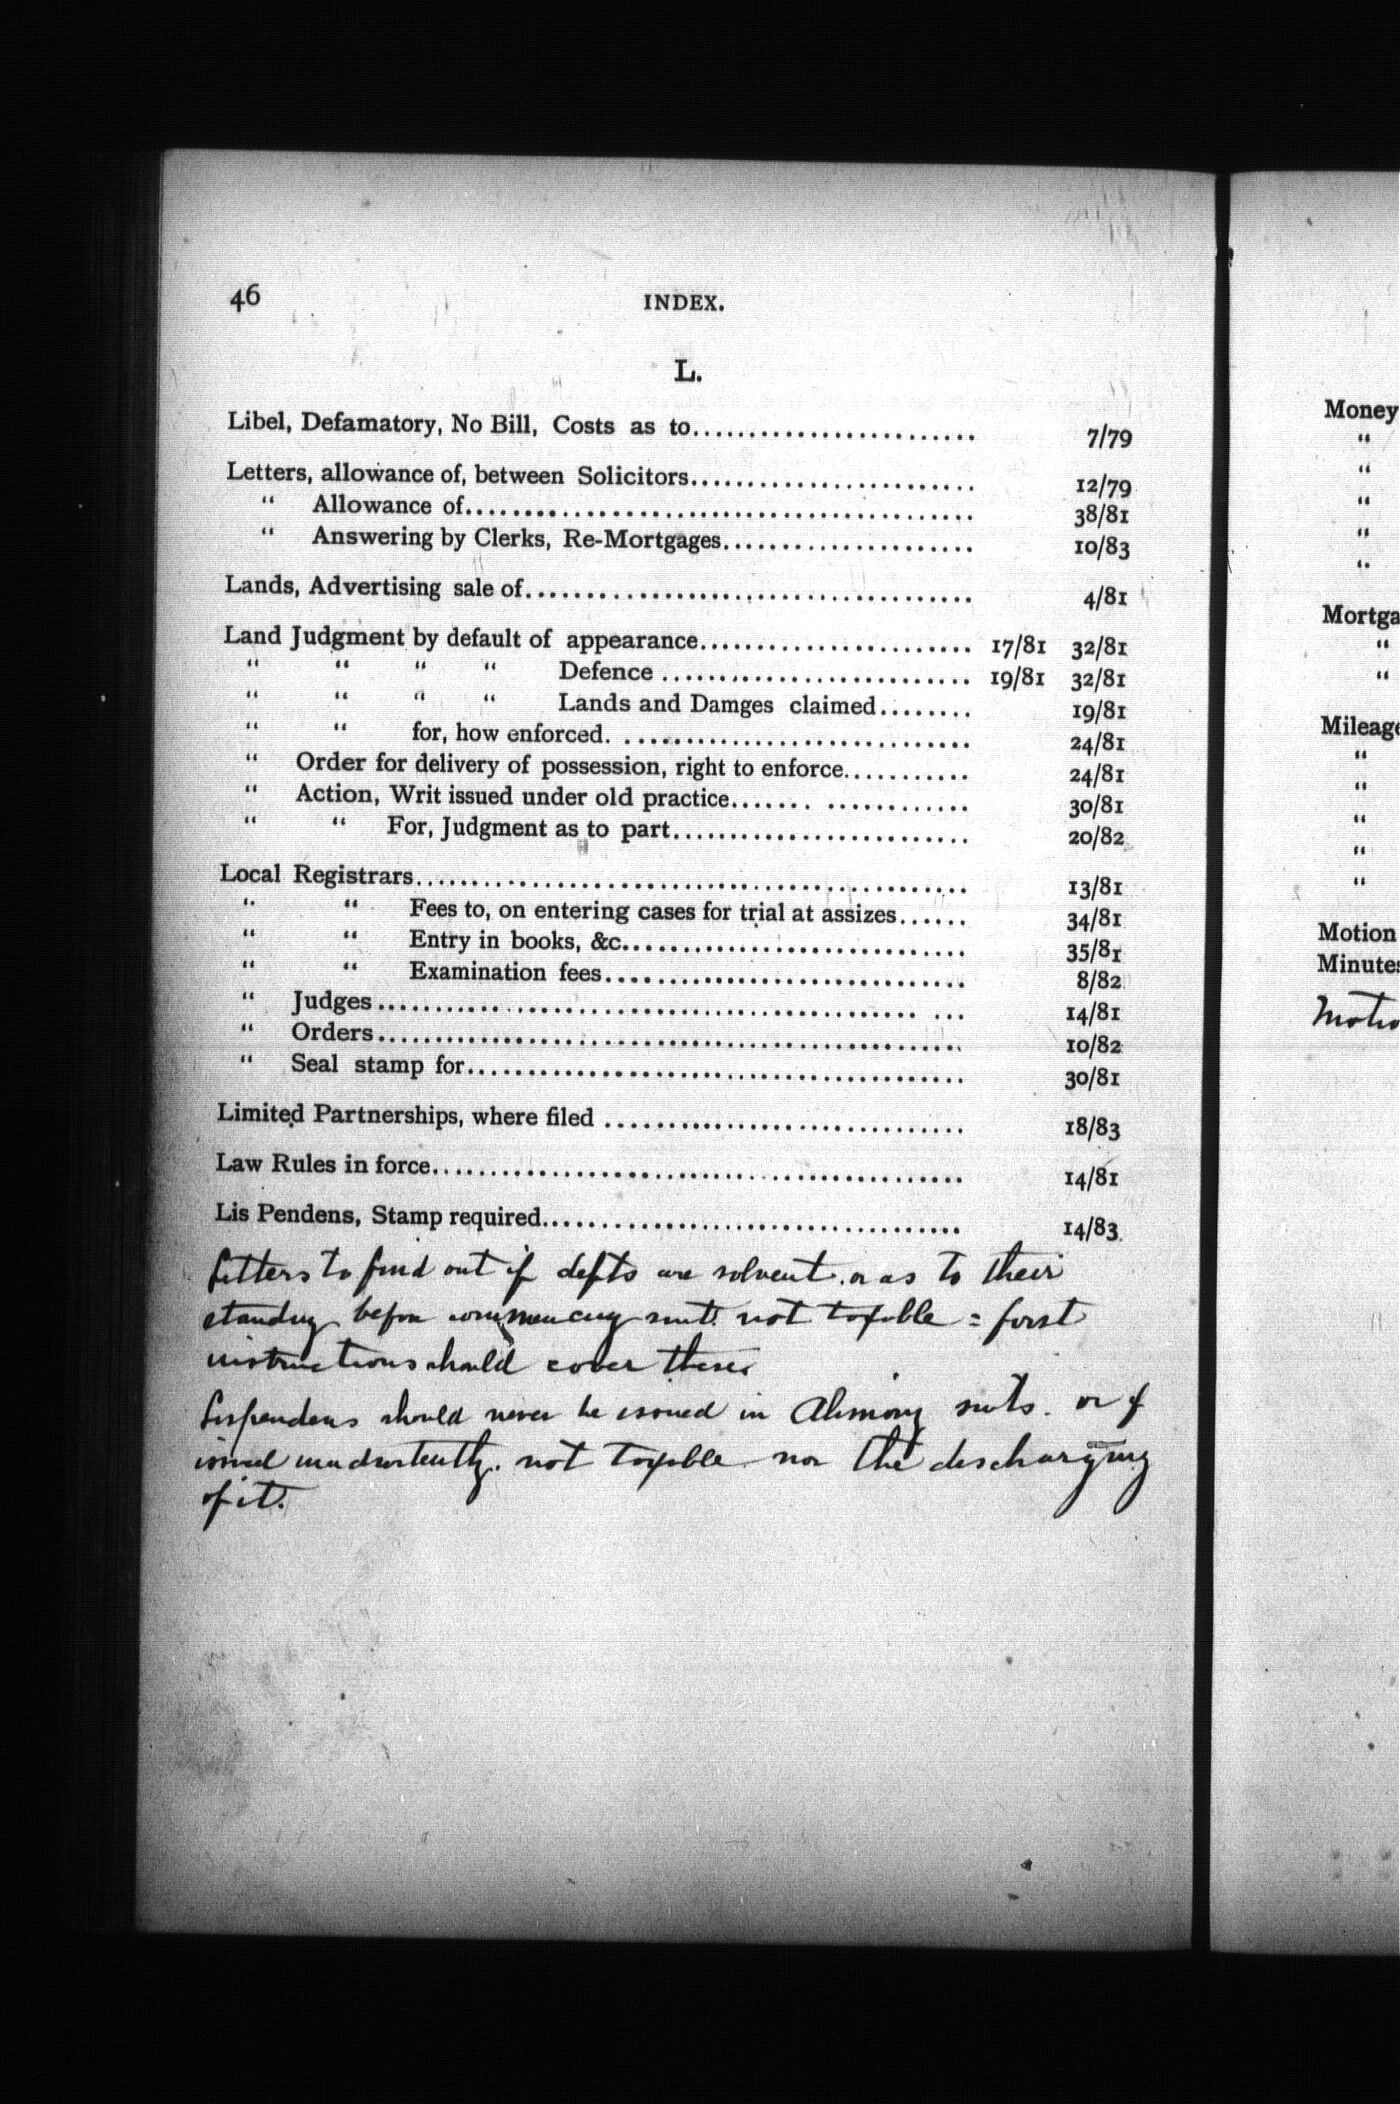 46
INDEX.
L.
Libel, Defamatory, No Bill, Costs as to......................... 7/79
Letters, allowance of, between Solicitors......................... 12/79
“ Allowance of............................................ 38/81
“ Answering by Clerks, Re-Mortgages...................... 10/83
Lands, Advertising sale of....................................... 4/81
Land Judgment by default of appearance........................ 17/81 32/81
“ “ “ “ Defence ........................... 19/81 32/81
“ “ “ “ Lands and Damges claimed........ 19/81
“ “ for, how enforced. .............................. 24/81
“ Order for delivery of possession, right to enforce........... 24/81
“ Action, Writ issued under old practice....... ............ 30/81
“ “ For, Judgment as to part.......................... 20/82
Local Registrars................................................ 13/81
“ “ Fees to, on entering cases for trial at assizes...... 34/81
“ “ Entry in books, &c.............................. 35/81
“ “ Examination fees................................ 8/82
“ Judges ............................................... ... 14/81
“ Orders.................................................. 10/82
“ Seal stamp for.......................................... 30/81
Limited Partnerships, where filed ............................... 18/83
Law Rules in force.............................................. 14/81
Lis Pendens, Stamp required.................................... 14/83
Letters to find out if defts are solvent. or as to their
standing before commencing suit. not taxable = first
instructions should cover these.
Lispendens should never be issued in Alimony suits. or if
issued inadvertently. not taxable nor the discharging
of it.
Money
“
“
“
“
“
Mortga
“
“
Mileage
“
“
“
“
“
Motion
Minutes
Motio